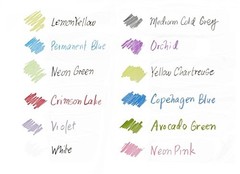 Lemon Yellow
Permanent Blue
Neon Green
Crimson Lake
Violet
White
Medium Cold Grey
Orchid
Yellow Chartreuse
Copenhagen Blue
Avocado Green
Neon Pink